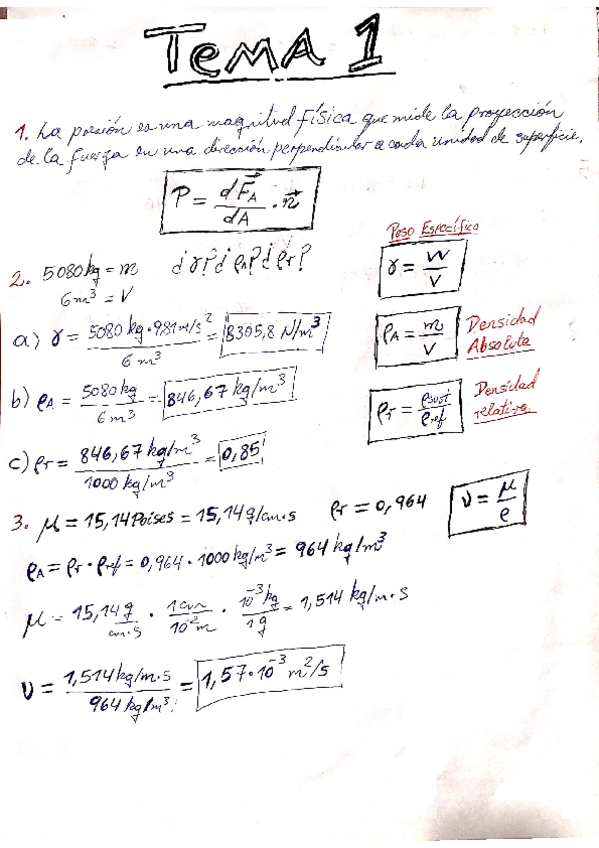 TEMA 1
1. La presión es una magnitud física que mide la proyección
de la fuerza en una dirección perpendicular a cada unidad de superficie.
P = dF⃗_A / dA · n⃗
2. 5080 kg = m ¿γ? ¿ρ_A? ¿ρ_r?
6 m³ = V
Peso Específico
γ = W / V
a) γ = 5080 kg · 9,81 m/s² / 6 m³ = 8305,8 N/m³
ρ_A = m / V Densidad
Absoluta
b) ρ_A = 5080 kg / 6 m³ = 846,67 kg/m³
ρ_r = ρ_sust / ρ_ref Densidad
relativa
c) ρ_r = 846,67 kg/m³ / 1000 kg/m³ = 0,85
3. μ = 15,14 Poises = 15,14 g/cm·s ρ_r = 0,964 ν = μ / ρ
ρ_A = ρ_r · ρ_ref = 0,964 · 1000 kg/m³ = 964 kg/m³
μ = 15,14 g / cm·s · 1 cm / 10⁻² m · 10⁻³ kg / 1 g = 1,514 kg/m·s
ν = 1,514 kg/m·s / 964 kg/m³ = 1,57·10⁻³ m²/s